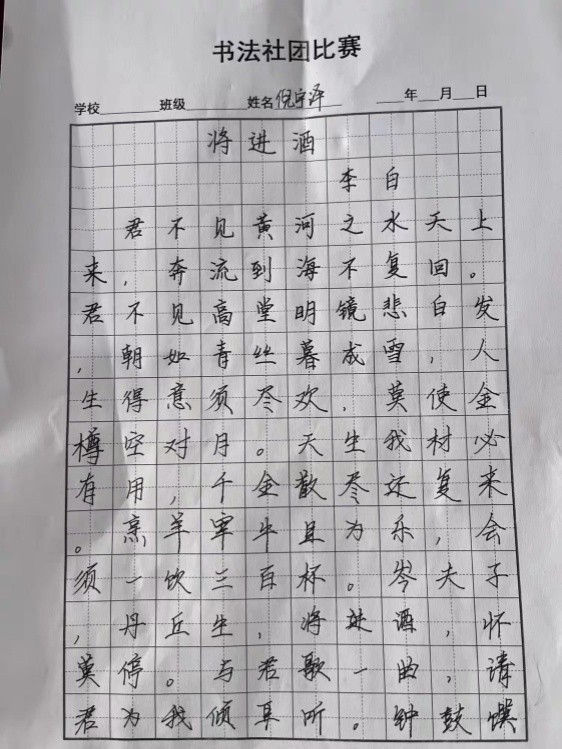 书法社团比赛
学校 班级 姓名倪宇泽 年 月 日
将进酒
李白
君不见黄河之水天上
来，奔流到海不复回。
君不见高堂明镜悲白发
，朝如青丝暮成雪，人
生得意须尽欢，莫使金
樽空对月。天生我材必
有用，千金散尽还复来
。烹羊宰牛且为乐，会
须一饮三百杯。岑夫子
，丹丘生，将进酒，怀
莫停。与君歌一曲，请
君为我倾耳听。钟鼓馔